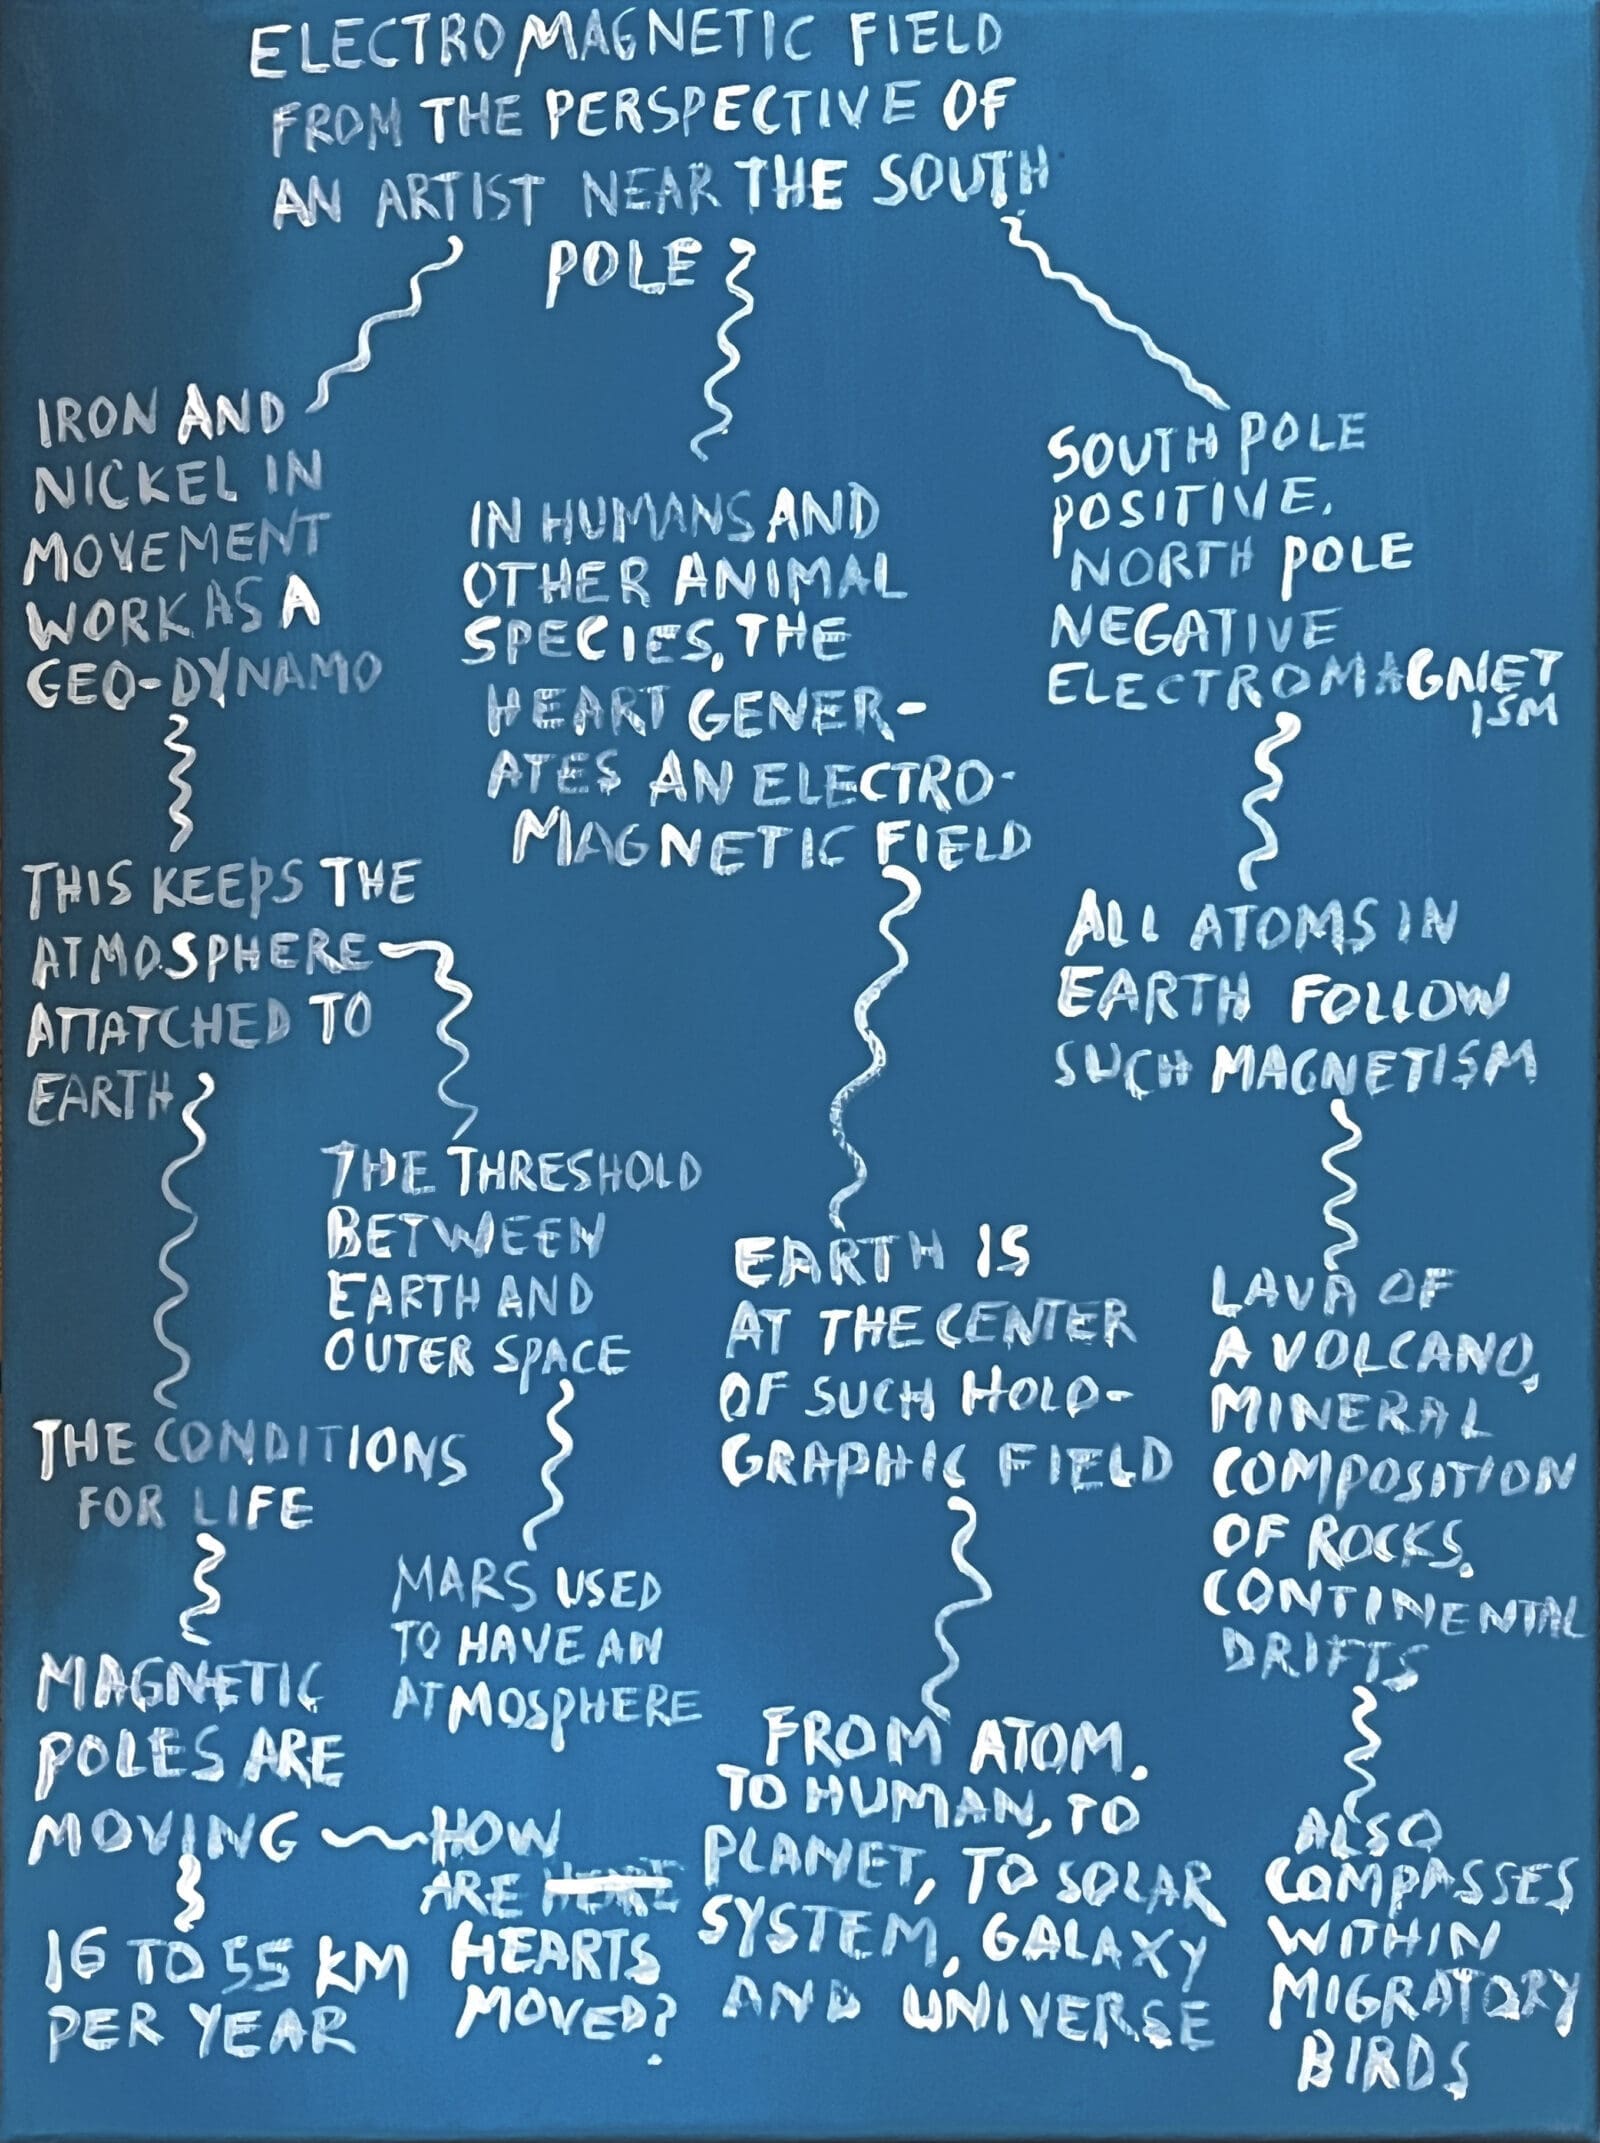 ELECTROMAGNETIC FIELD
FROM THE PERSPECTIVE OF
AN ARTIST NEAR THE SOUTH
POLE
IRON AND
NICKEL IN
MOVEMENT
WORK AS A
GEO-DYNAMO
THIS KEEPS THE
ATMOSPHERE
ATTATCHED TO
EARTH
THE CONDITIONS
FOR LIFE
MAGNETIC
POLES ARE
MOVING
16 TO 55 KM
PER YEAR
HOW
ARE
HEARTS
MOVED?
THE THRESHOLD
BETWEEN
EARTH AND
OUTER SPACE
MARS USED
TO HAVE AN
ATMOSPHERE
IN HUMANS AND
OTHER ANIMAL
SPECIES, THE
HEART GENER-
ATES AN ELECTRO-
MAGNETIC FIELD
EARTH IS
AT THE CENTER
OF SUCH HOLO-
GRAPHIC FIELD
FROM ATOM.
TO HUMAN, TO
PLANET, TO SOLAR
SYSTEM, GALAXY
AND UNIVERSE
SOUTH POLE
POSITIVE.
NORTH POLE
NEGATIVE
ELECTROMAGNET
ISM
ALL ATOMS IN
EARTH FOLLOW
SUCH MAGNETISM
LAVA OF
A VOLCANO,
MINERAL
COMPOSITION
OF ROCKS.
CONTINENTAL
DRIFTS
ALSO
COMPASSES
WITHIN
MIGRATORY
BIRDS